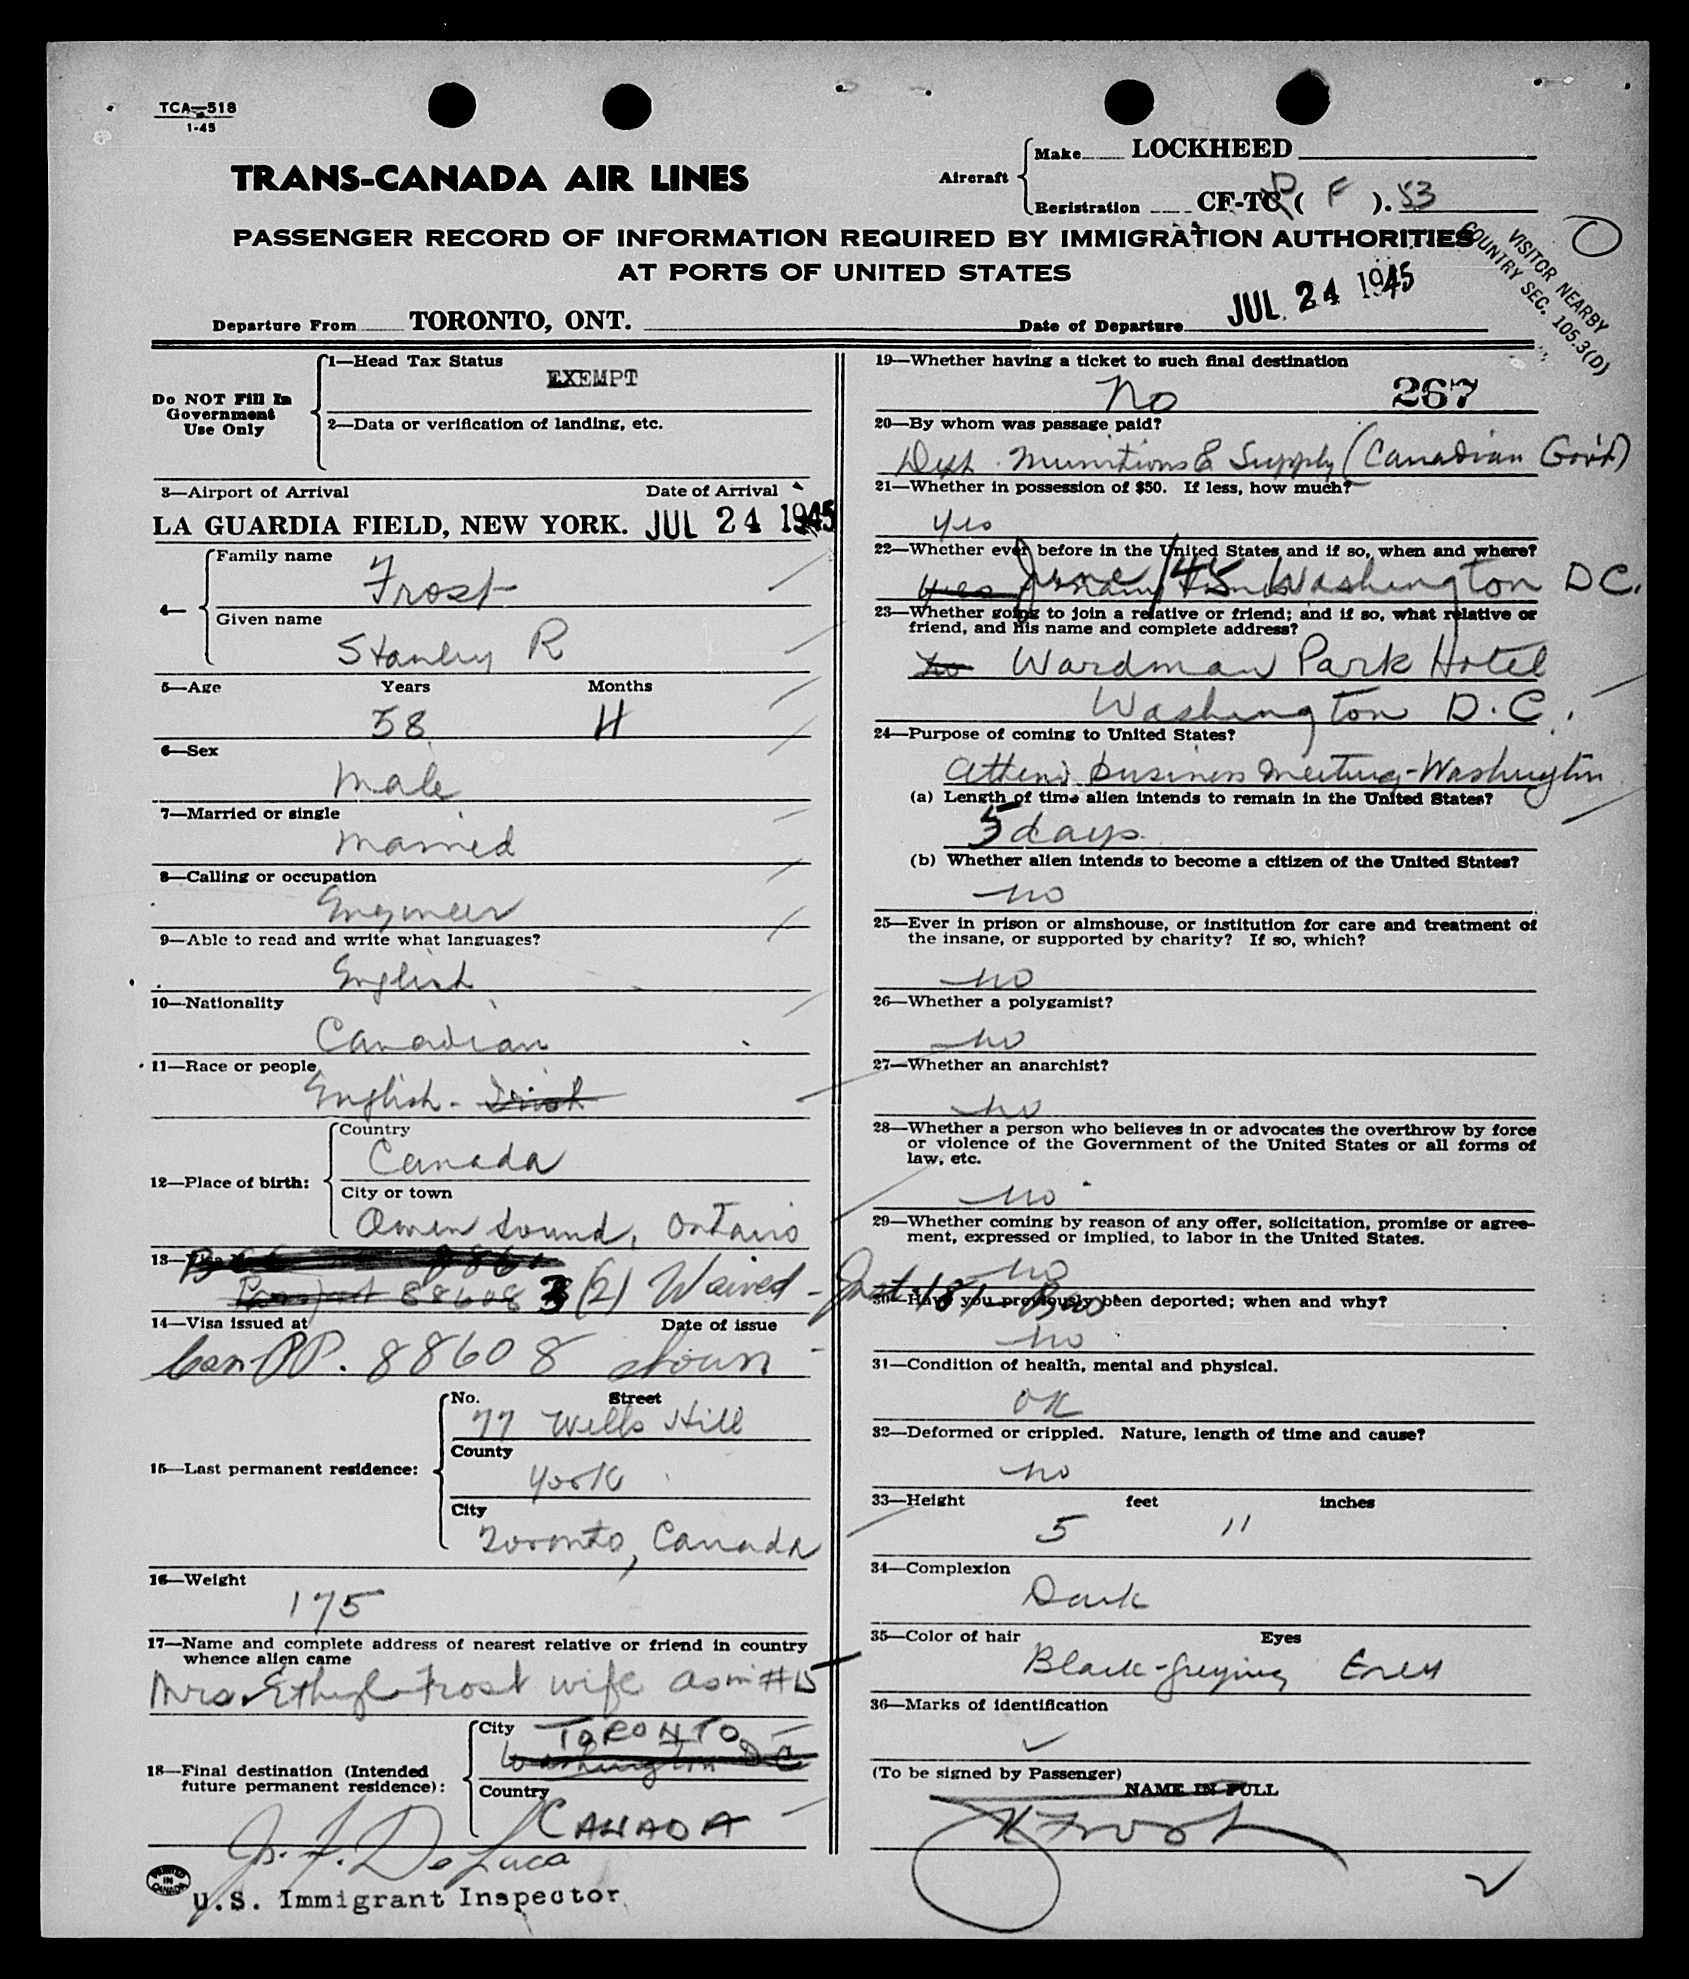 TCA—518
1-45
TRANS-CANADA AIR LINES
Aircraft
Make LOCKHEED
Registration CF-TC ( F ). 53
PASSENGER RECORD OF INFORMATION REQUIRED BY IMMIGRATION AUTHORITIES
AT PORTS OF UNITED STATES
VISITOR NEARBY
COUNTRY SEC. 105.3(D)
Departure From TORONTO, ONT.
Date of Departure JUL 24 1945
Do NOT Fill In
Government
Use Only
1—Head Tax Status
EXEMPT
2—Data or verification of landing, etc.
3—Airport of Arrival Date of Arrival
LA GUARDIA FIELD, NEW YORK. JUL 24 1945
4—
Family name
Frost
Given name
Stanley R
5—Age Years Months
58
6—Sex
male
7—Married or single
married
8—Calling or occupation
Engineer
9—Able to read and write what languages?
English
10—Nationality
Canadian
11—Race or people
English - Irish
12—Place of birth:
Country
Canada
City or town
Owen Sound, Ontario
13—
Passport 88608 (2) Waived -
14—Visa issued at Date of issue
Can PP. 88608
15—Last permanent residence:
No. Street
77 Wells Hill
County
York
City
Toronto, Canada
16—Weight
175
17—Name and complete address of nearest relative or friend in country
whence alien came
Mrs. Frost wife as in #15
18—Final destination (Intended
future permanent residence):
City
TORONTO
Washington D C
Country
CANADA
De Luca
U.S. Immigrant Inspector
PRINTED IN CANADA
19—Whether having a ticket to such final destination
No 267
20—By whom was passage paid?
Dept. Munitions & Supply (Canadian Gov't)
21—Whether in possession of $50. If less, how much?
yes
22—Whether ever before in the United States and if so, when and where?
yes many times June /45 Washington DC.
23—Whether going to join a relative or friend; and if so, what relative or
friend, and his name and complete address?
no Wardman Park Hotel
Washington D.C.
24—Purpose of coming to United States?
Attend business meeting - Washington
(a) Length of time alien intends to remain in the United States?
5 days
(b) Whether alien intends to become a citizen of the United States?
no
25—Ever in prison or almshouse, or institution for care and treatment of
the insane, or supported by charity? If so, which?
no
26—Whether a polygamist?
no
27—Whether an anarchist?
no
28—Whether a person who believes in or advocates the overthrow by force
or violence of the Government of the United States or all forms of
law, etc.
no
29—Whether coming by reason of any offer, solicitation, promise or agree-
ment, expressed or implied, to labor in the United States.
no
30—Have you previously been deported; when and why?
no
31—Condition of health, mental and physical.
OK
32—Deformed or crippled. Nature, length of time and cause?
no
33—Height feet inches
5 11
34—Complexion
Dark
35—Color of hair Eyes
Black-greying Grey
36—Marks of identification
(To be signed by Passenger)
NAME IN FULL
Frost